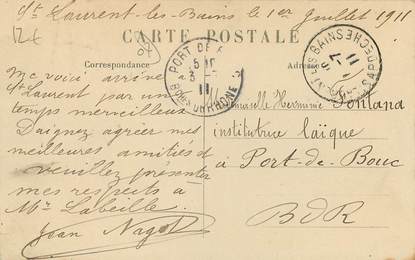 St Laurent-les-Bains le 1er Juillet 1911
CARTE POSTALE
Correspondance
Adresse
Me voici arrivé à
St Laurent par un
temps merveilleux
Daignez agréer mes
meilleures amitiés et
veuillez présenter
mes respects à
Mr Labeille.
Jean Nagot
PORT DE
BCHES DU RHONE
11
LES BAINS
ARDECHE
11
Mademoiselle Herminie
institutrice laïque
à Port-de-Bouc
BdR